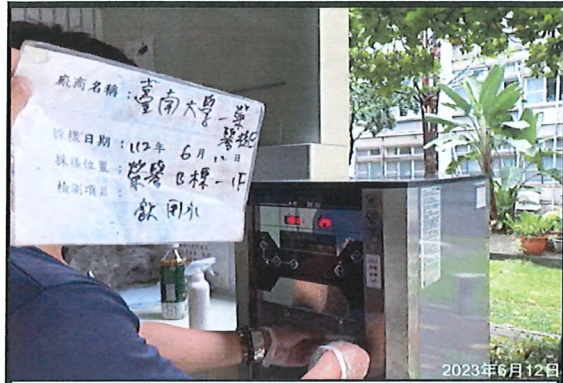 廠商名稱：臺南大學－榮
譽校區
採樣日期：112年 6月 12日
採樣位置：榮譽 B棟－1F
檢測項目：
飲用水
2023年6月12日